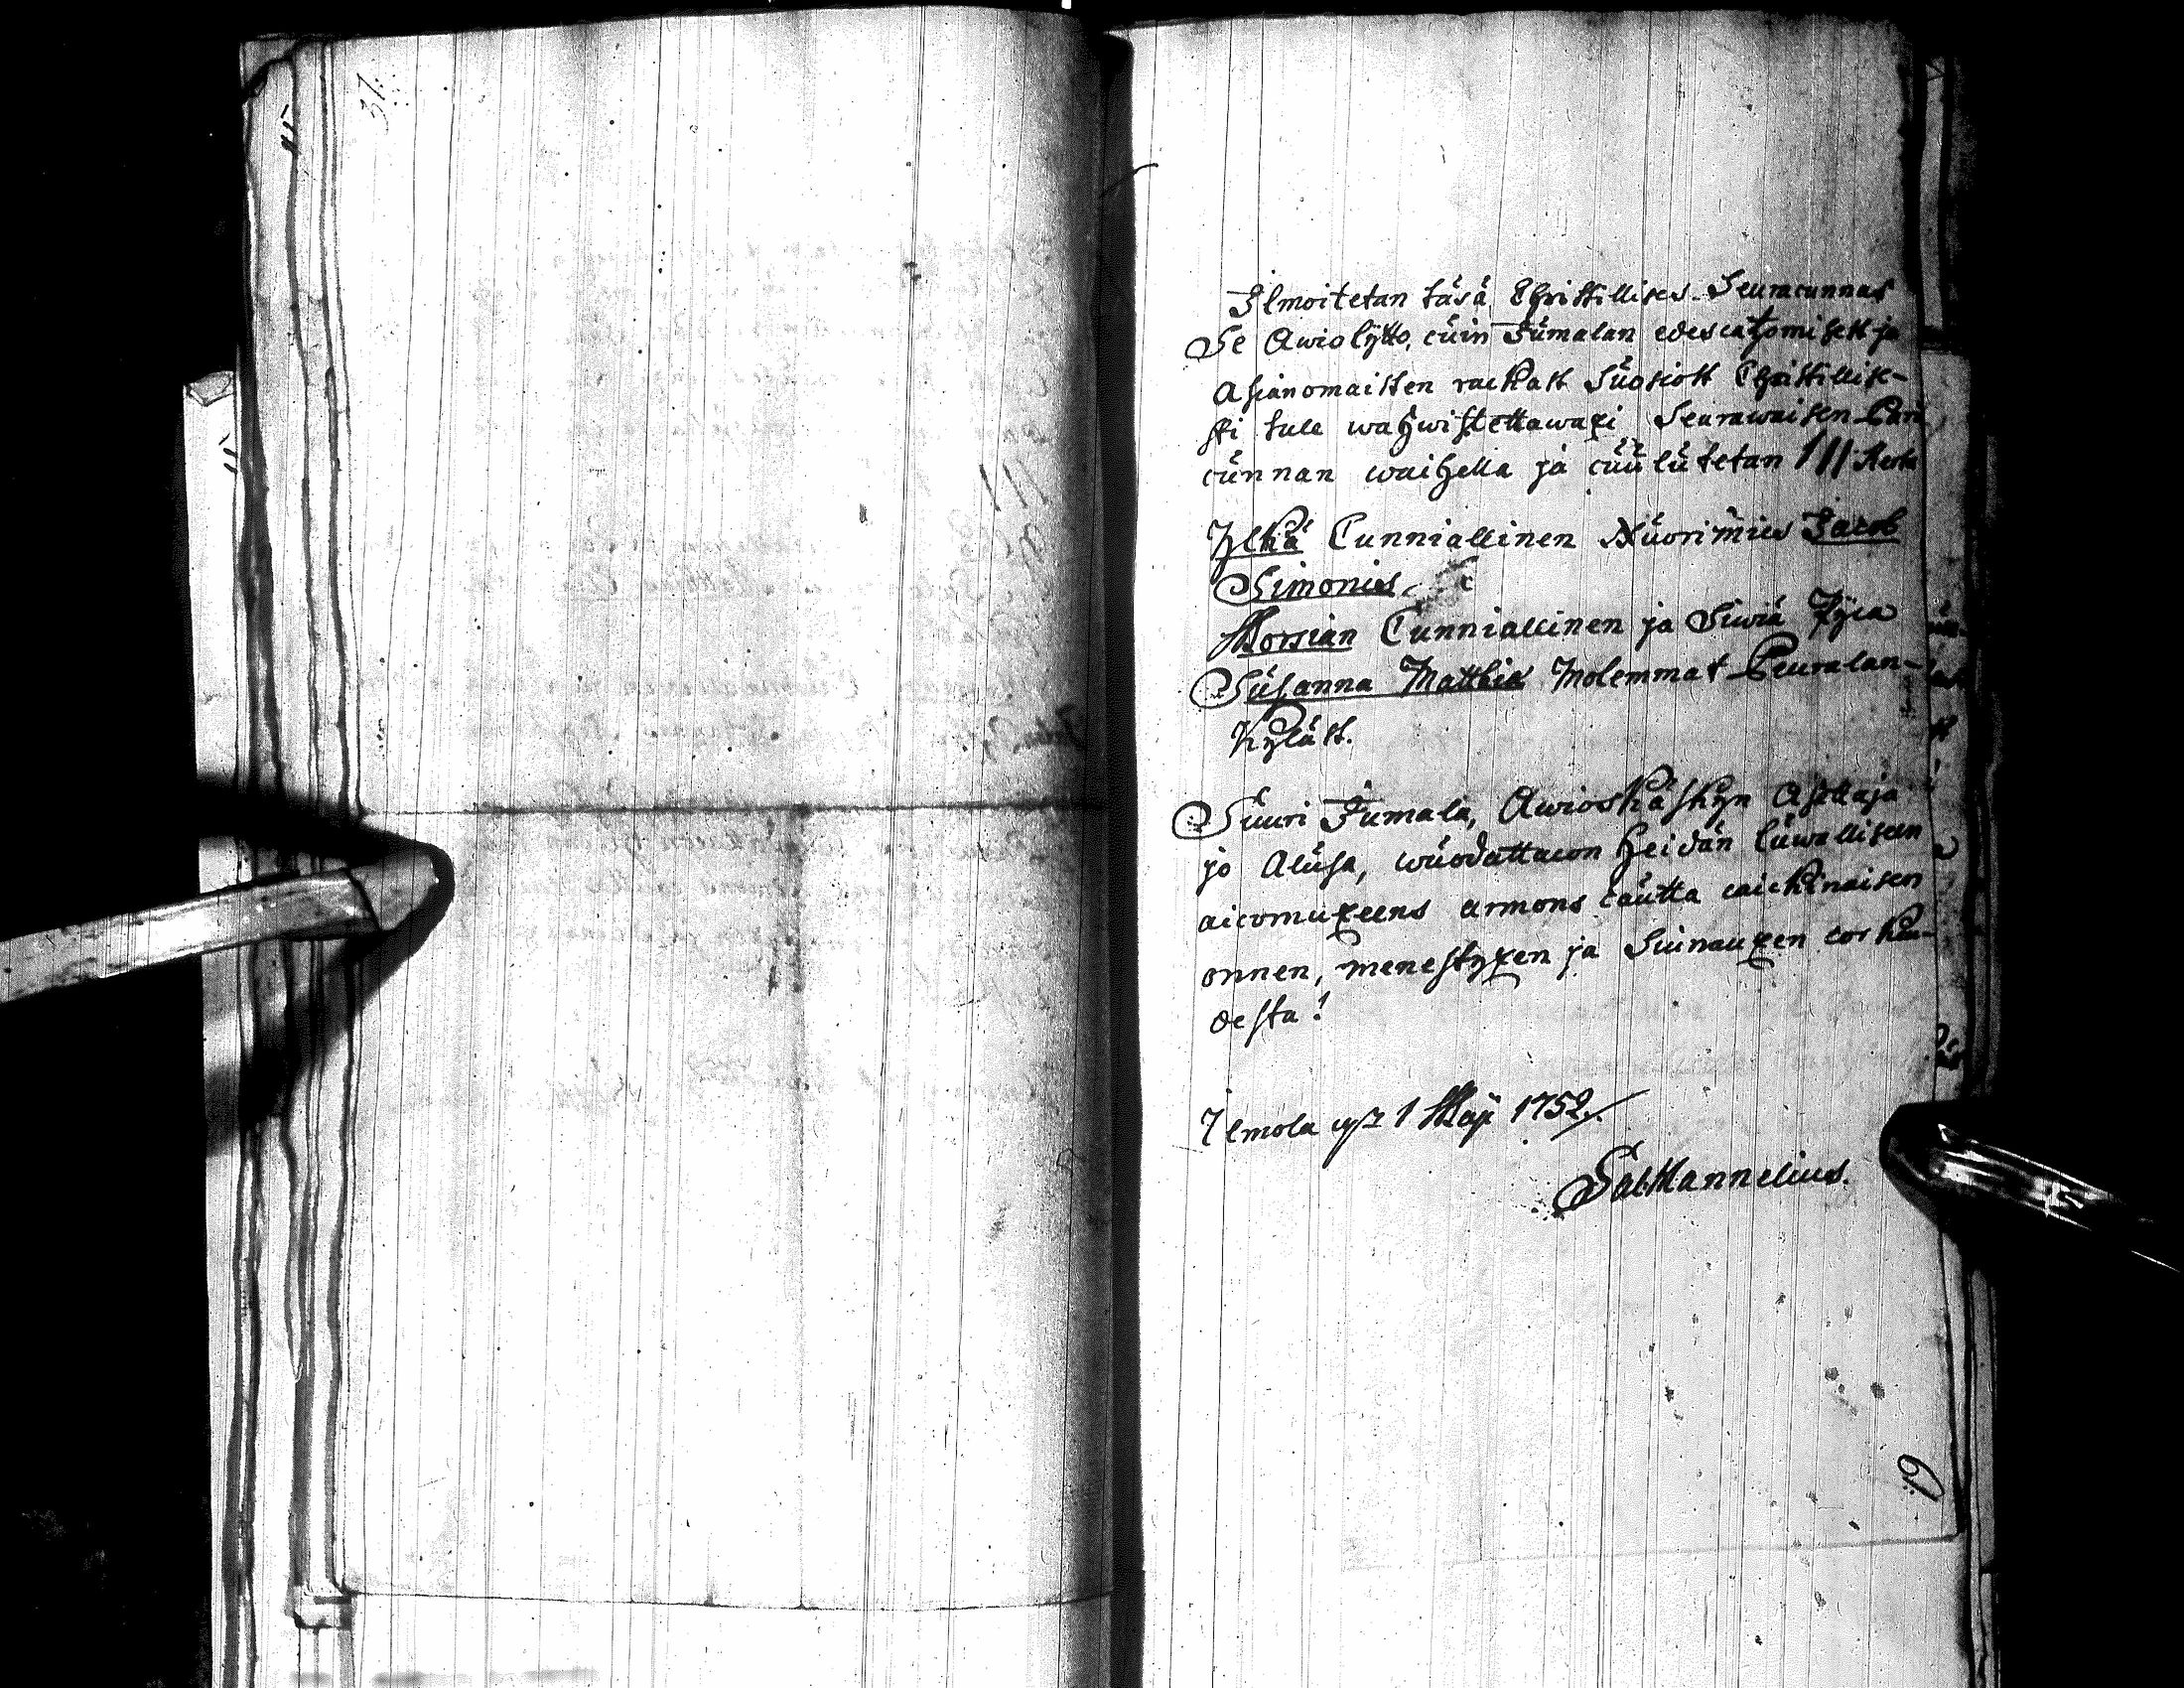 37.
Ilmoitetan täsä Christillises Seuracunnas
Se Awiolijtto, cuin Jumalan edescatzomisest ja
Asianomaisten rackast Suosiost Christillise-
sti tule wahwistettawaxi Seurawaisen Pari
cunnan waihella ja cuulutetan III Kerta
Ylkä Cunniallinen Nuorimies Jacob
Simonies.
Morsian Cunniallinen ja Siwiä Pijca
Susanna Matthia Molemmat Peuralan-
Kyläst.
Suuri Jumala, Awioskäskyn Asettaja
ja Alusa, wuodattacon heidän luwallisen
aicomuxeens armons cautta caickinaisen
onnen, menestyxen ja Siunauxen corkeu-
desta!
Ilmola 1 Maji 1752.
Sal Mannelius.